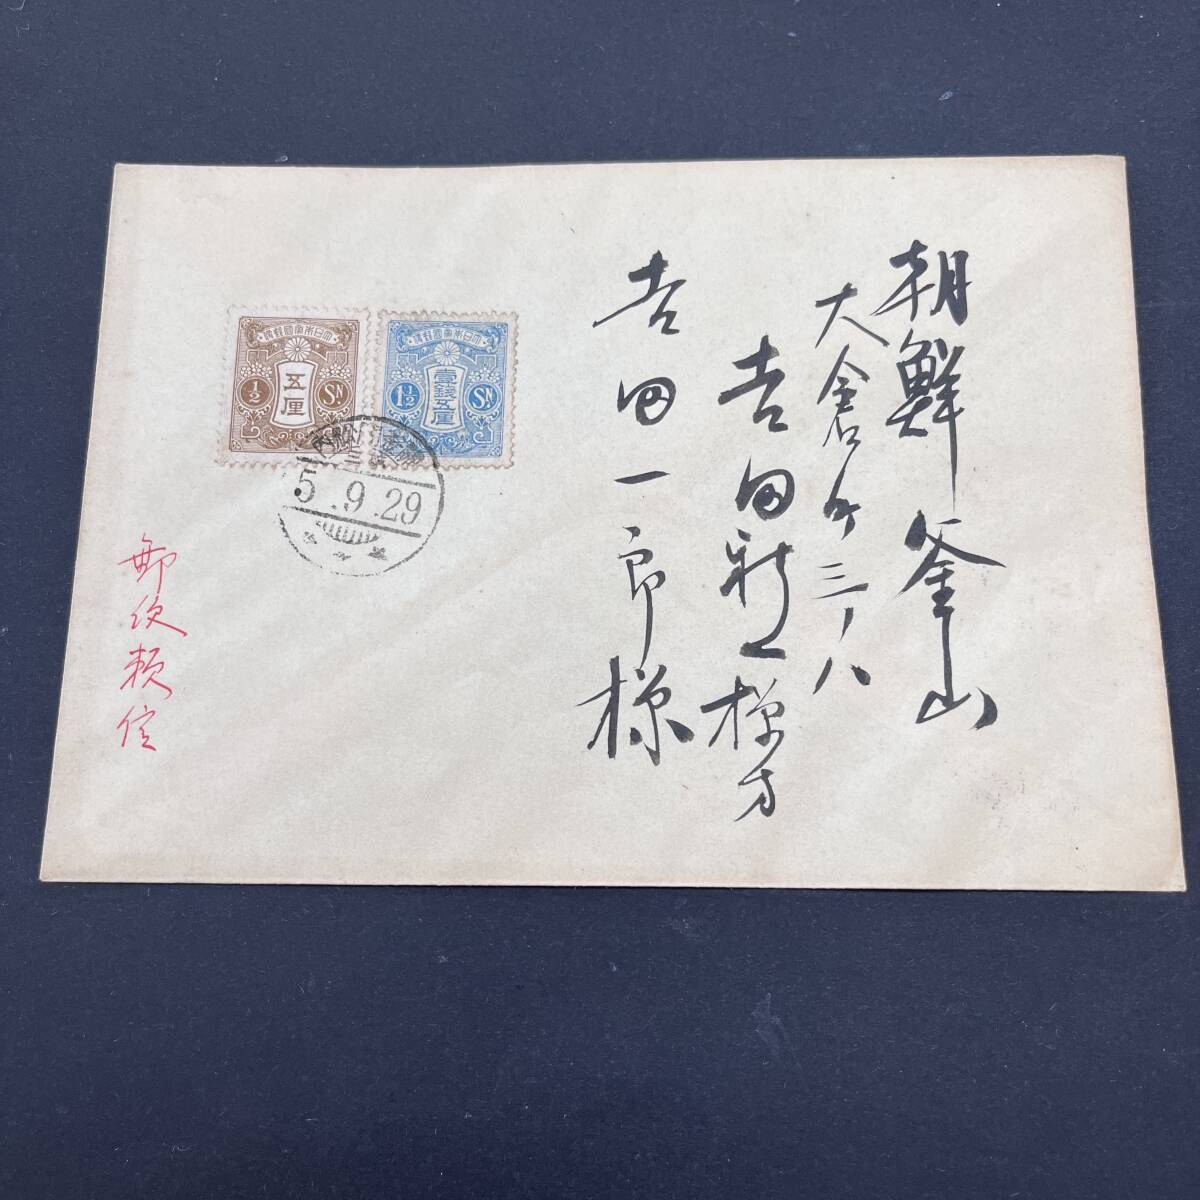 朝鮮釜山
大倉町三ノ八
吉田新一様方
吉田一郎様
大日本帝國郵便
五厘
1/2
SN
大日本帝國郵便
壹銭五厘
1 1/2
SN
5.9.29
郵便頼信